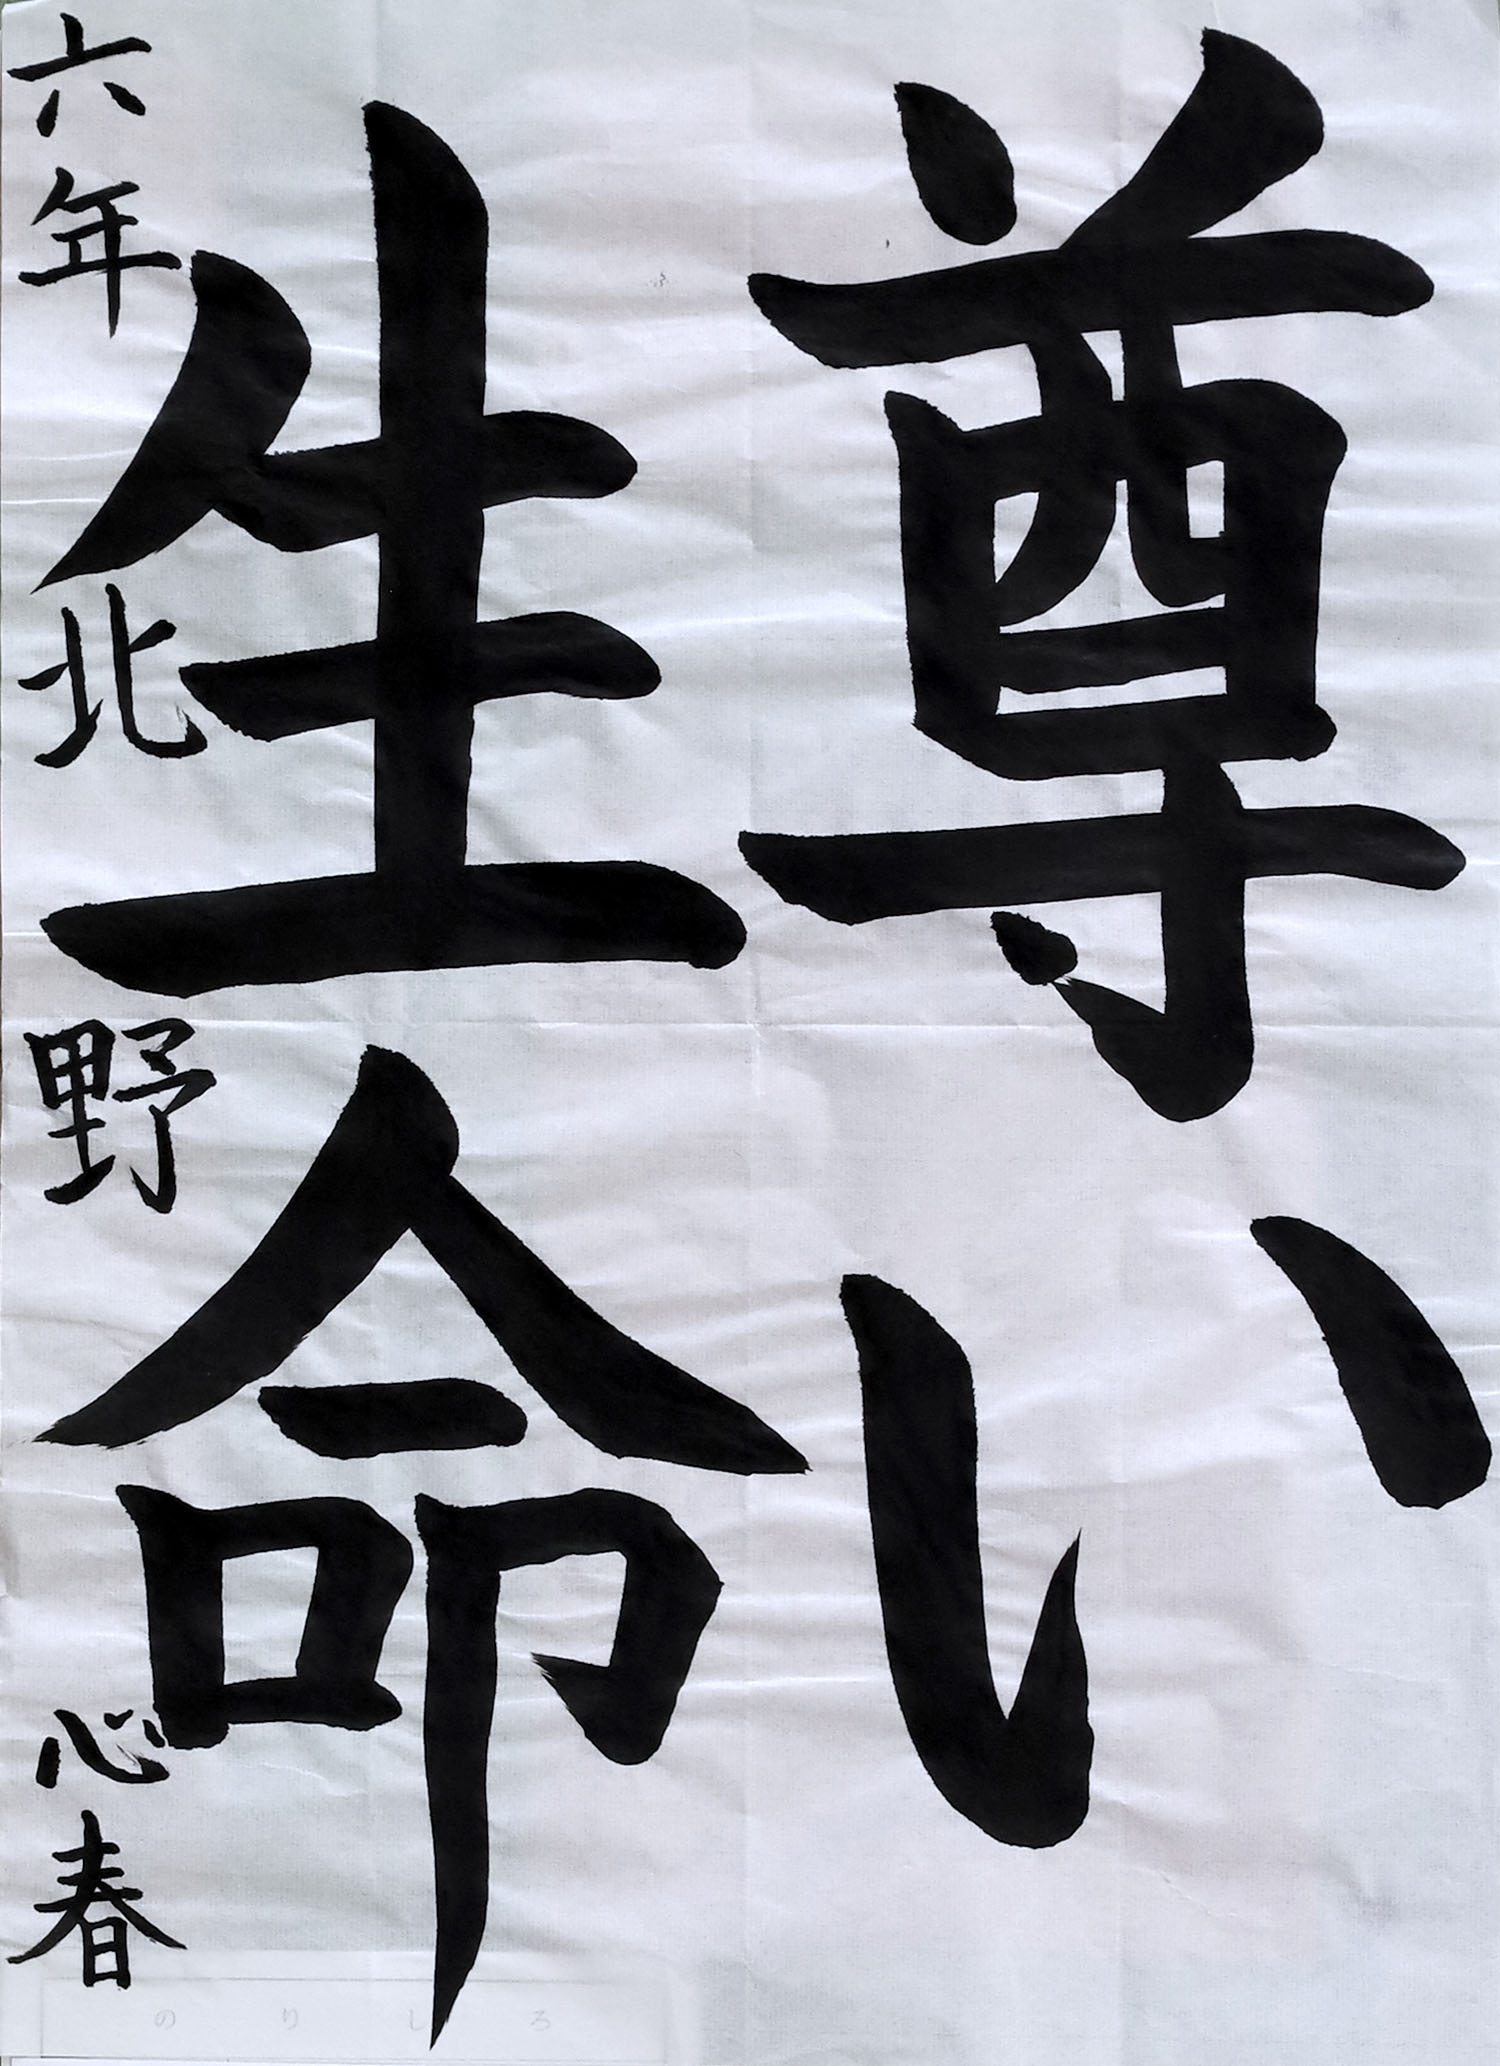 尊い
生命
六年 北野 心春
のりしろ